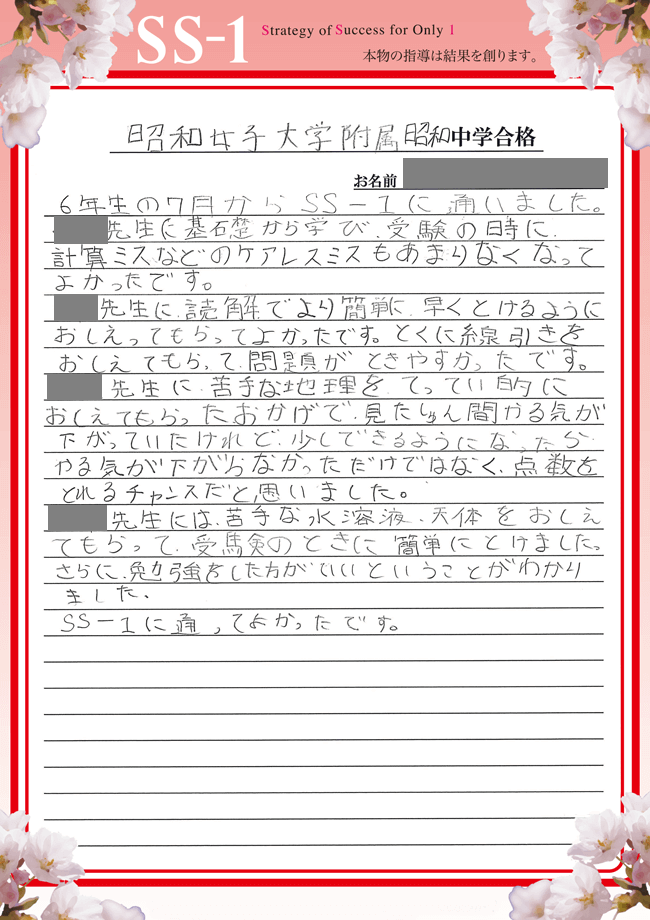 SS-1
Strategy of Success for Only 1
本物の指導は結果を創ります。
昭和女子大学附属昭和中学合格
お名前
6年生の7月からSS-1に通いました。
先生に基石楚から学び、受験の時に、
計算ミスなどのケアレスミスもあまりなくなって
よかったです。
先生に、読解でより簡単に、早くとけるように
おしえってもらってよかったです。とくに線引きを
おしえてもらって、問題がときやすかったです。
先生に、苦手な地理を、てってい的に
おしえてもらったおかげで、見たしゅん間やる気が
下がっていたけれど、少しできるようになったら
やる気が下がらなかっただけではなく、点数を
とれるチャンスだと思いました。
先生には、苦手な水溶液、天体をおしえ
てもらって、受験のときに簡単にとけました。
さらに、勉強をした方がいいということがわかり
ました、
SS-1に通ってよかったです。